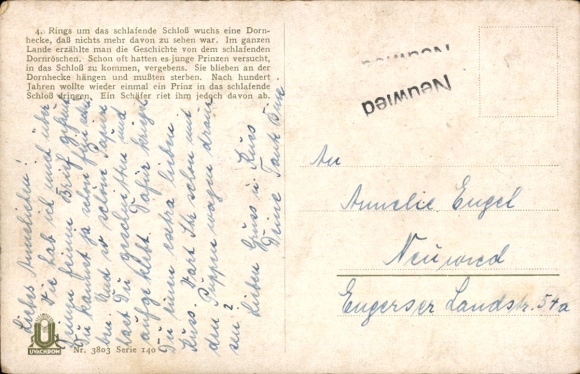 4. Rings um das schlafende Schloß wuchs eine Dorn-
hecke, daß nichts mehr davon zu sehen war. Im ganzen
Lande erzählte man die Geschichte von dem schlafenden
Dornröschen. Schon oft hatten es junge Prinzen versucht,
in das Schloß zu kommen, vergebens. Sie blieben an der
Dornhecke hängen und mußten sterben. Nach hundert
Jahren wollte wieder einmal ein Prinz in das schlafende
Schloß dringen. Ein Schäfer riet ihm jedoch davon ab.
Liebes Annelichen!
Wie hab ich mich über
Deinen feinen Brief gefreut
Du kannst ja schon fein schrei
ben. Und so schöne Papier
hast Du geschnitten und
aufgeklebt. Dafür kriegst
Du einen extra lieben
Kuss. Warst Ihr schon mit
dem Puppenwagen drau
sen?
Lieben Gruss u. Kuss
Deine Tante
Neuwied
Neuwied
An
Annelie Engel
Neuwied
Engerser Landstr. 54a
UVACHROM
Nr. 3803 Serie 140